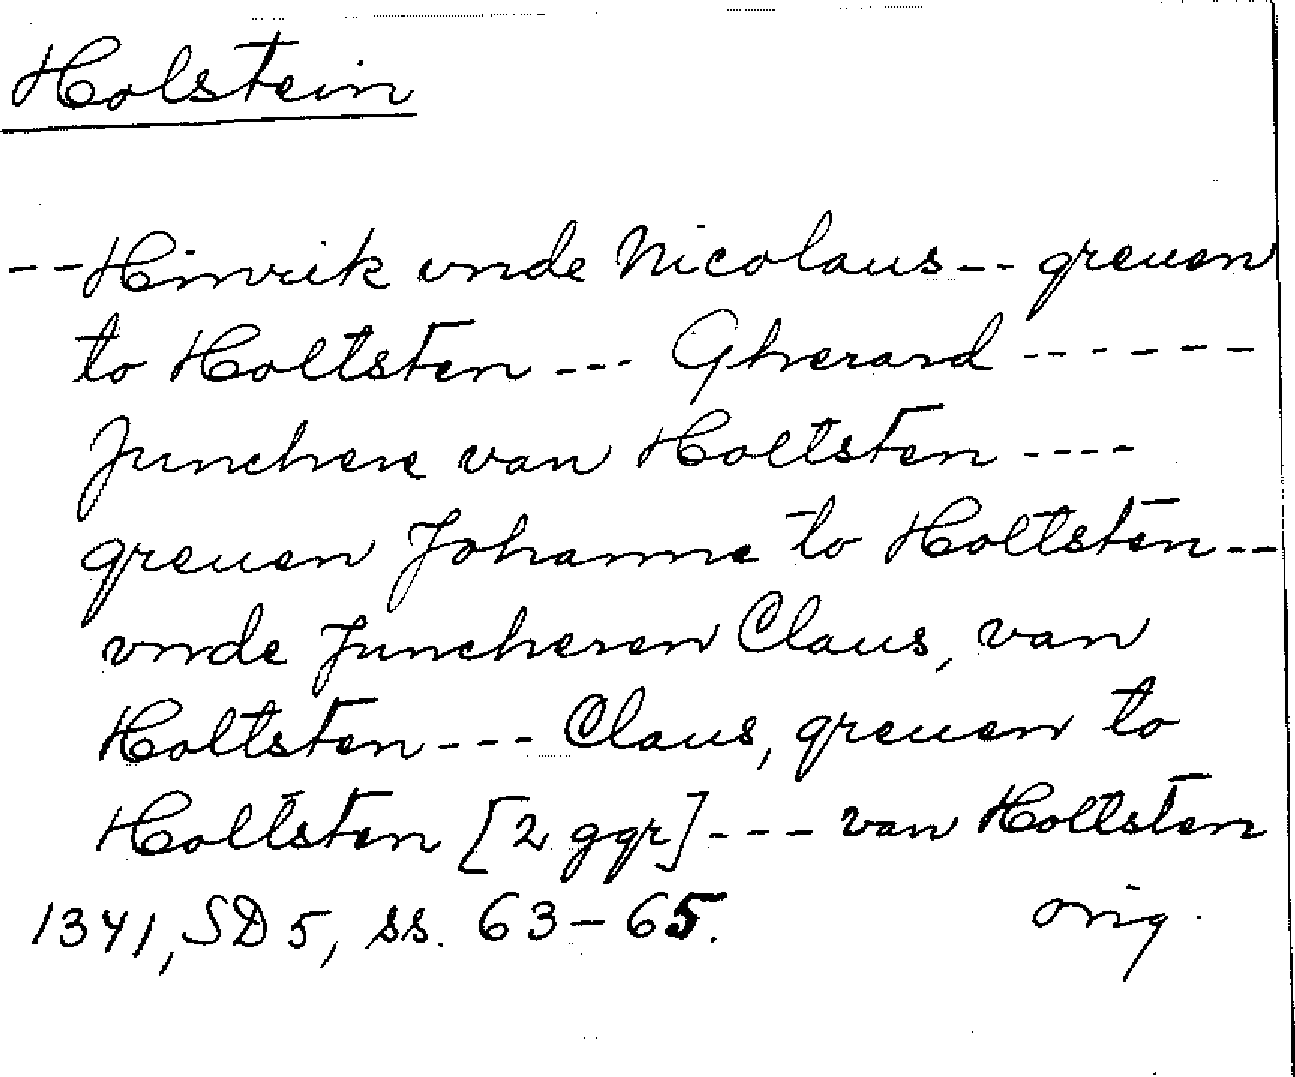 Holstein
-- Hinrik vnde Nicolaus -- greuen
to Holtsten --- Gherard ------
Junchere van Holtsten ----
greuen Johanne to Holtsten --
vnde Juncheren Claus, van
Holtsten --- Claus, greuen to
Holtsten [2 ggr] --- van Holtsten
1341, SD 5, ss. 63-65. orig.